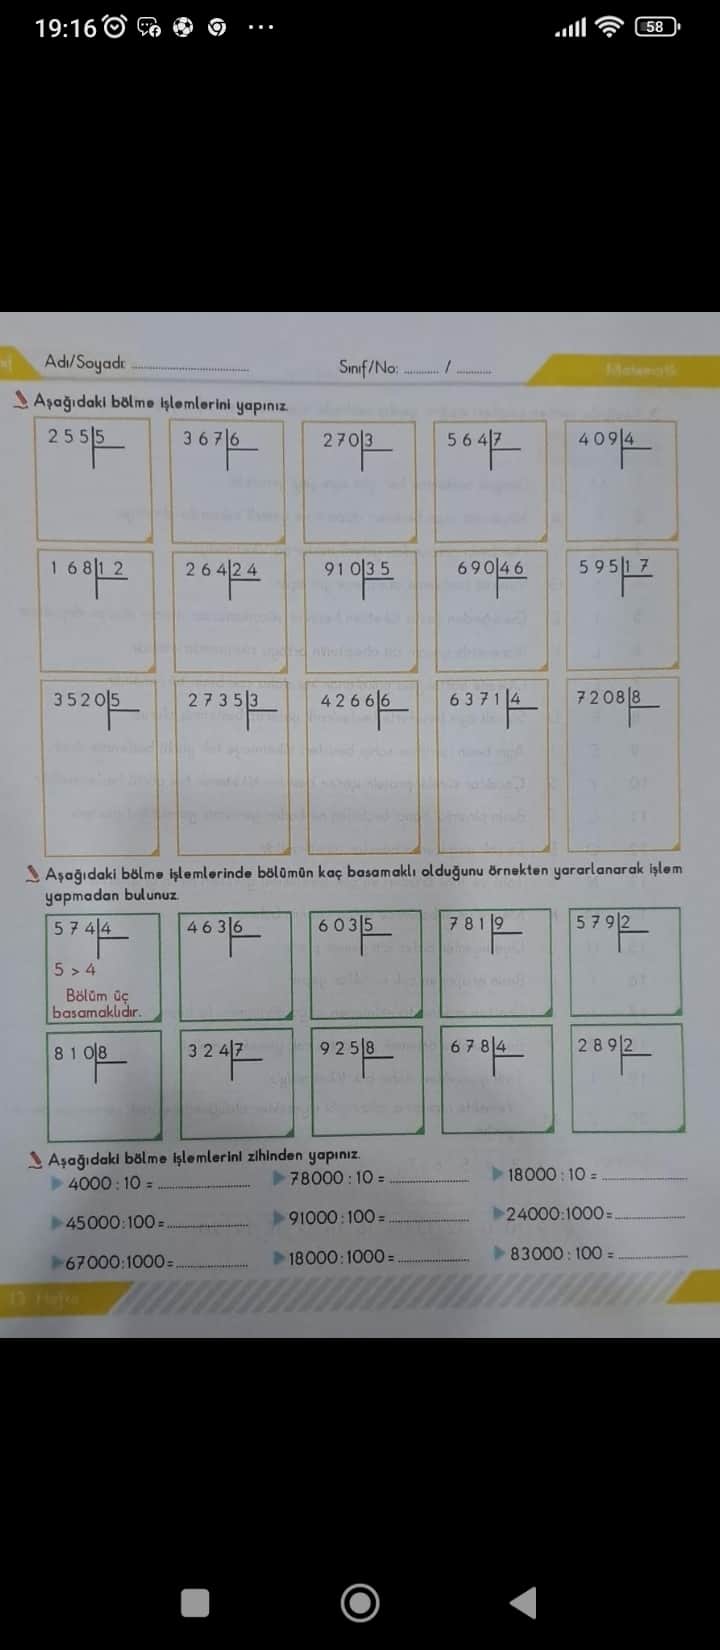 19:16 58
Adı/Soyadı: Sınıf/No: / Matematik
Aşağıdaki bölme işlemlerini yapınız.
255 5 367 6 270 3 564 7 409 4
168 12 264 24 910 35 690 46 595 17
3520 5 2735 3 4266 6 6371 4 7208 8
Aşağıdaki bölme işlemlerinde bölümün kaç basamaklı olduğunu örnekten yararlanarak işlem
yapmadan bulunuz.
574 4 463 6 603 5 781 9 579 2
5 > 4
Bölüm üç
basamaklıdır.
810 8 324 7 925 8 678 4 289 2
Aşağıdaki bölme işlemlerini zihinden yapınız.
4000 : 10 = 78000 : 10 = 18000 : 10 =
45000:100= 91000:100= 24000:1000=
67000:1000= 18000:1000= 83000 : 100 =
13. Hafta